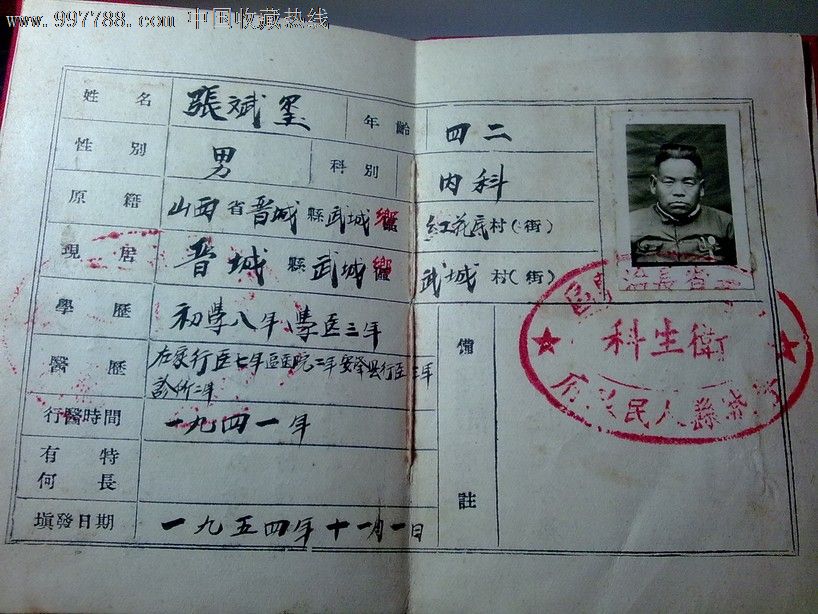 www.997788.com 中国收藏热线
姓名 張斌璽 年齡 四二
性別 男 科別 內科
原籍 山西省晋城縣武城鄉 紅花底村(街)
現居 晋城縣武城鄉 武城村(街)
學歷 初學八年 學医三年
醫歷 在家行医七年區医院二年安泽县行医三年
診所二年
行醫時間 一九四一年
有何特長
填發日期 一九五四年十一月一日
備註
省長治專區
衛生科
縣人民政府